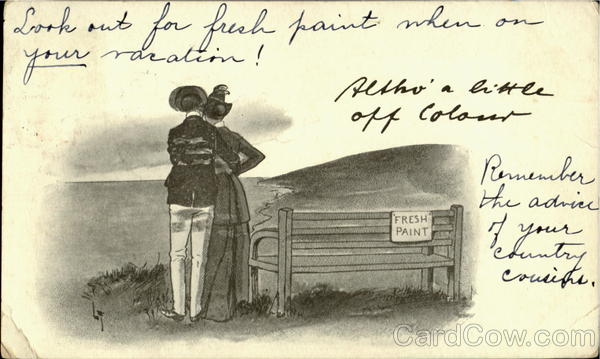 Look out for fresh paint when on
your vacation!
Altho' a little
off Colour
Remember
the advice
of your
country
cousins.
FRESH
PAINT
CardCow.com